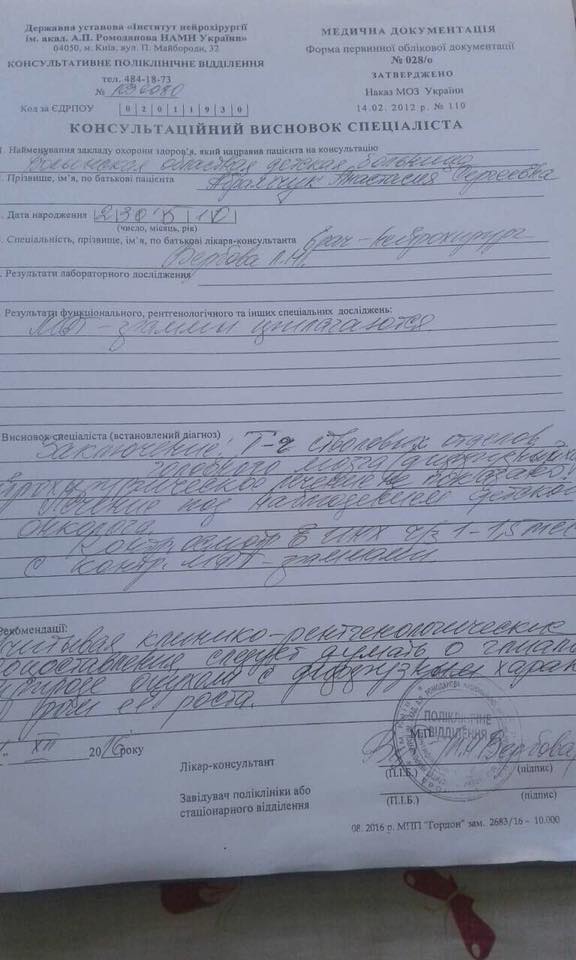 Державна установа «Інститут нейрохірургії
ім. акад. А.П. Ромоданова НАМН України»
04050, м. Київ, вул. П. Майбороди, 32
КОНСУЛЬТАТИВНЕ ПОЛІКЛІНІЧНЕ ВІДДІЛЕННЯ
тел. 484-18-73
№
Код за ЄДРПОУ 02011930
МЕДИЧНА ДОКУМЕНТАЦІЯ
Форма первинної облікової документації
№ 028/о
ЗАТВЕРДЖЕНО
Наказ МОЗ України
14.02. 2012 р. № 110
КОНСУЛЬТАЦІЙНИЙ ВИСНОВОК СПЕЦІАЛІСТА
Найменування закладу охорони здоров'я, який направив пацієнта на консультацію
областная детская больница
Прізвище, ім'я, по батькові пацієнта Анастасия Сергеевна
Дата народження
(число, місяць, рік)
Спеціальність, прізвище, ім'я, по батькові лікаря-консультанта врач-нейрохирург
Вербова Л.Н.
Результати лабораторного дослідження
Результати функціонального, рентгенологічного та інших спеціальних досліджень:
МРТ - граммы прилагаются.
Висновок спеціаліста (встановлений діагноз)
Заключение: T-r стволовых отделов
головного мозга
лечение не показано
Лечение под наблюдением детского
онколога
Контр осмотр в ИНХ ч/з 1-1,5 мес
с контр. МРТ-граммами.
Рекомендації:
Учитывая клинико-рентгенологические
сопоставления следует думать о глиальн
природе опухоли с диффузным харак
ее роста.
XII 2016 року
ПОЛІКЛІНІЧНЕ
ВІДДІЛЕННЯ
М.П.
Лікар-консультант
Л.Н Вербова
(П.І.Б.) (підпис)
Завідувач поліклініки або
стаціонарного відділення
(П.І.Б.) (підпис)
08. 2016 р. МПП "Гордон" зам. 2683/16 - 10.000